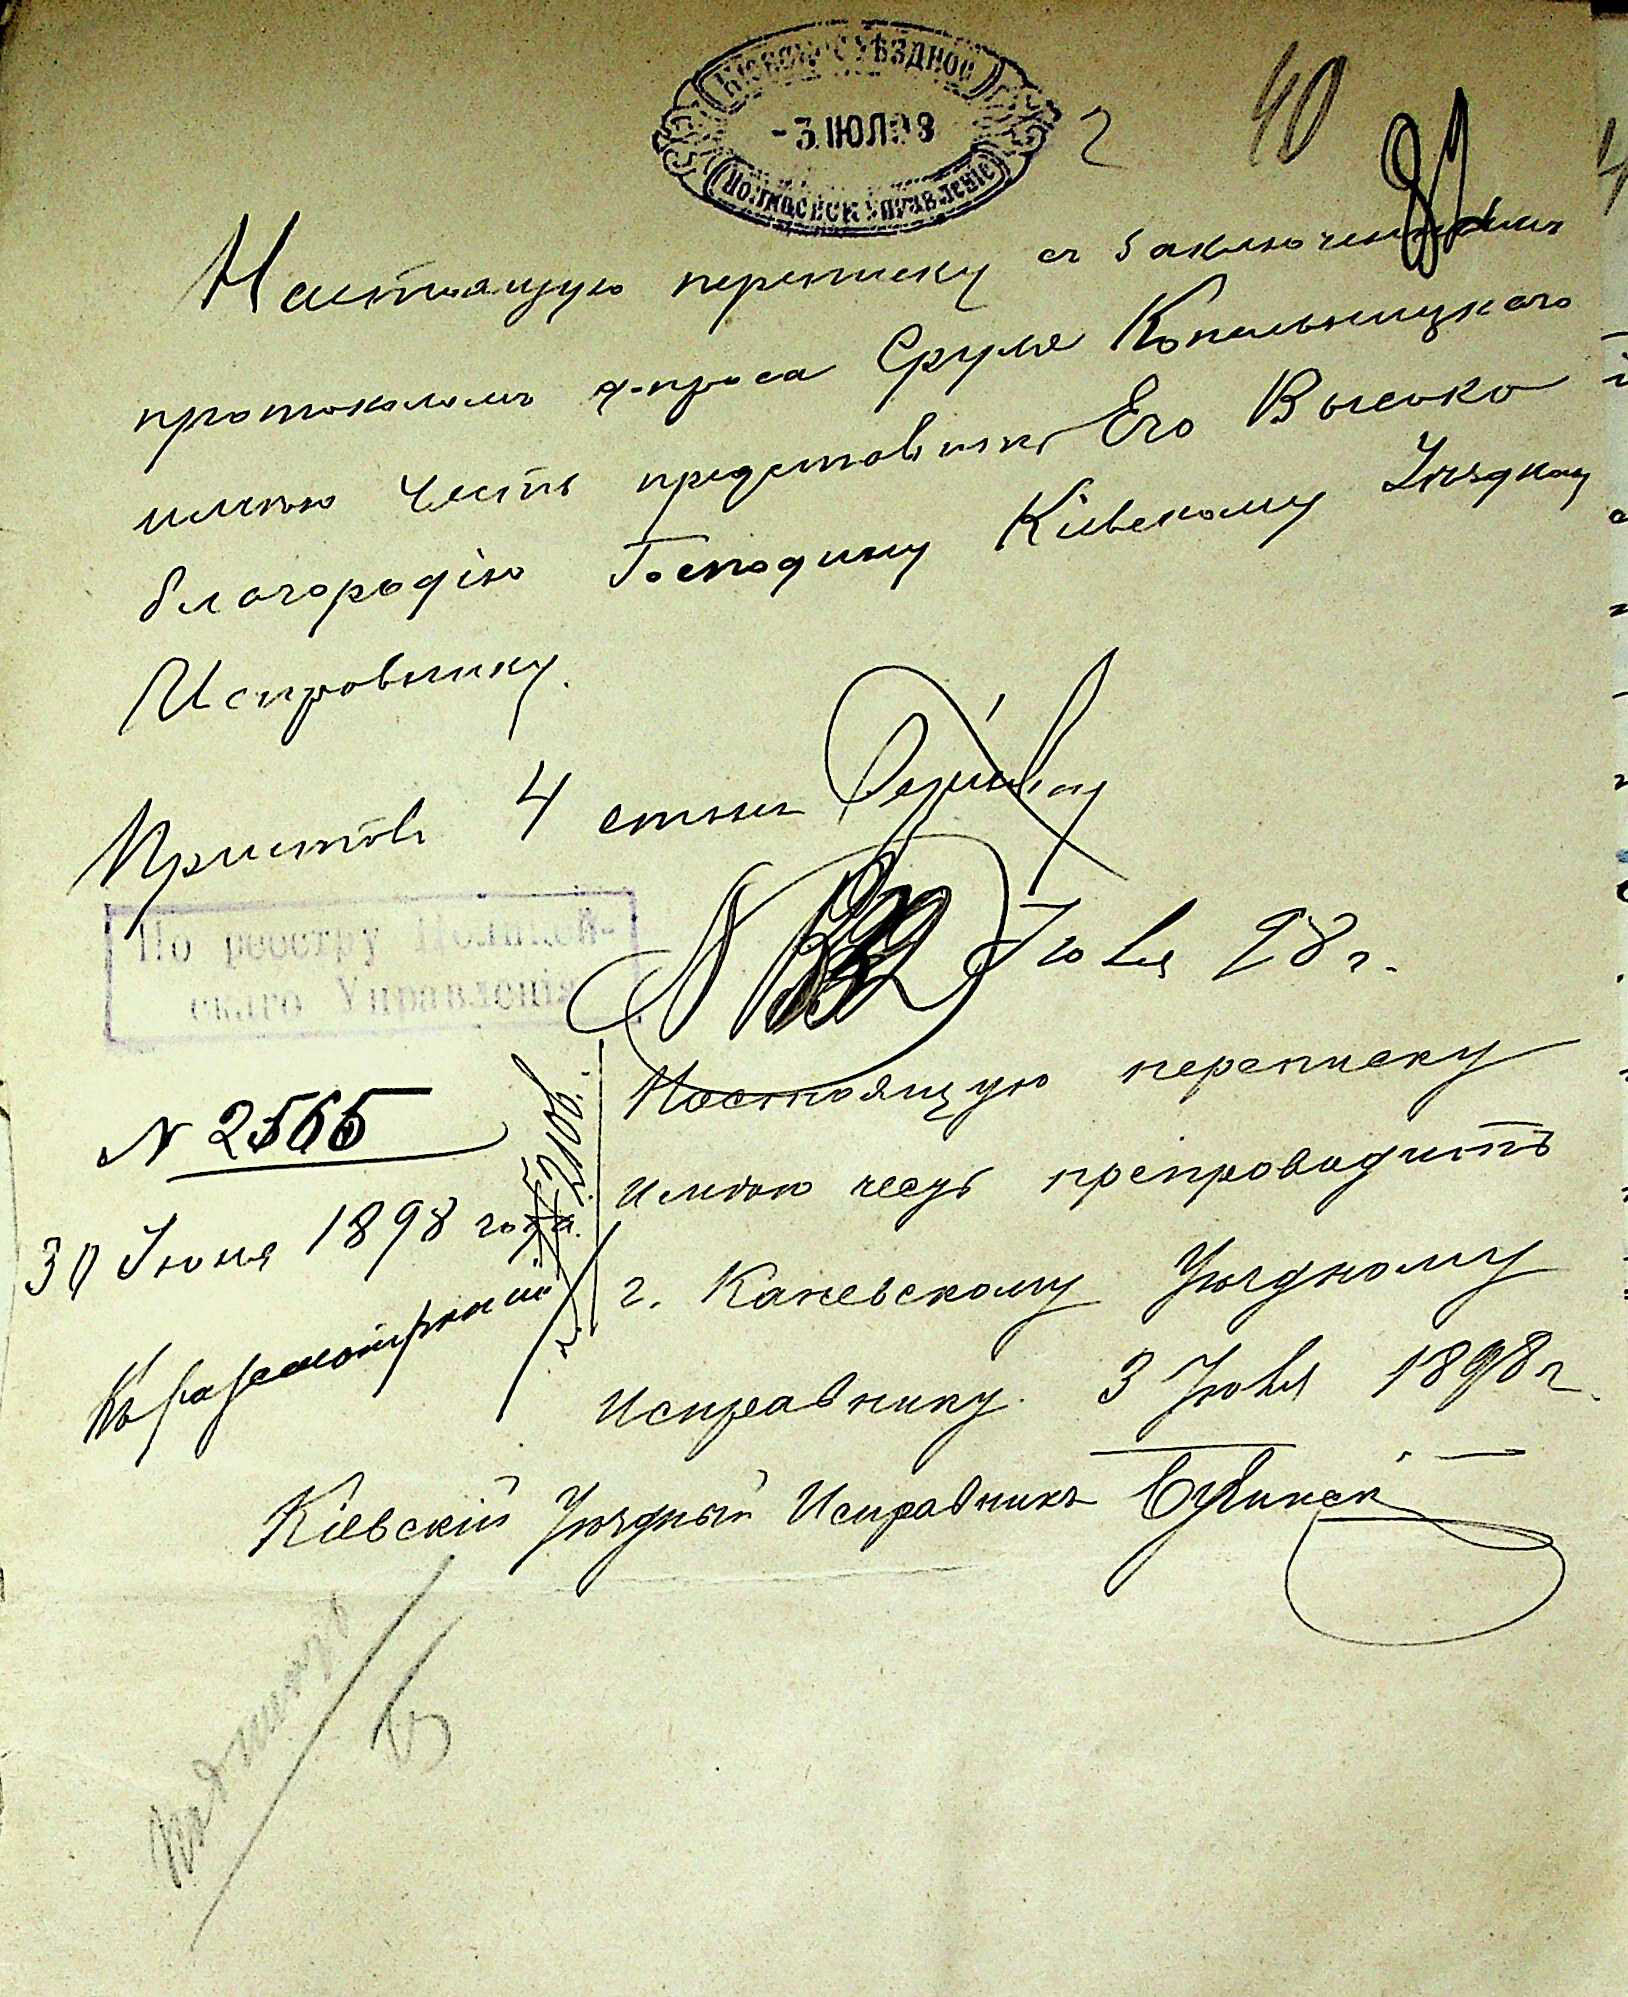 КІЕВСКОЕ УѢЗДНОЕ
-3.ІЮЛ 98
ПОЛИЦЕЙСК УПРАВЛЕНІЕ
2
40
Настоящую переписку съ заключеніемъ
протоколомъ допроса Сруля Копельницкого
имѣю честь представить Его Высоко
благородію Господину Кіевскому Уѣздному
Исправнику.
Приставъ 4 стана
№ Іюля 98 г.
По реестру Полицей-
скаго Управленія
№ 2565
30 Іюня 1898 года.
Къ разсмотрѣнію
Настоящую переписку
имѣю честь препроводить
г. Каневскому Уѣздному
Исправнику. 3 Іюля 1898 г.
Кіевскій Уѣздный Исправникъ